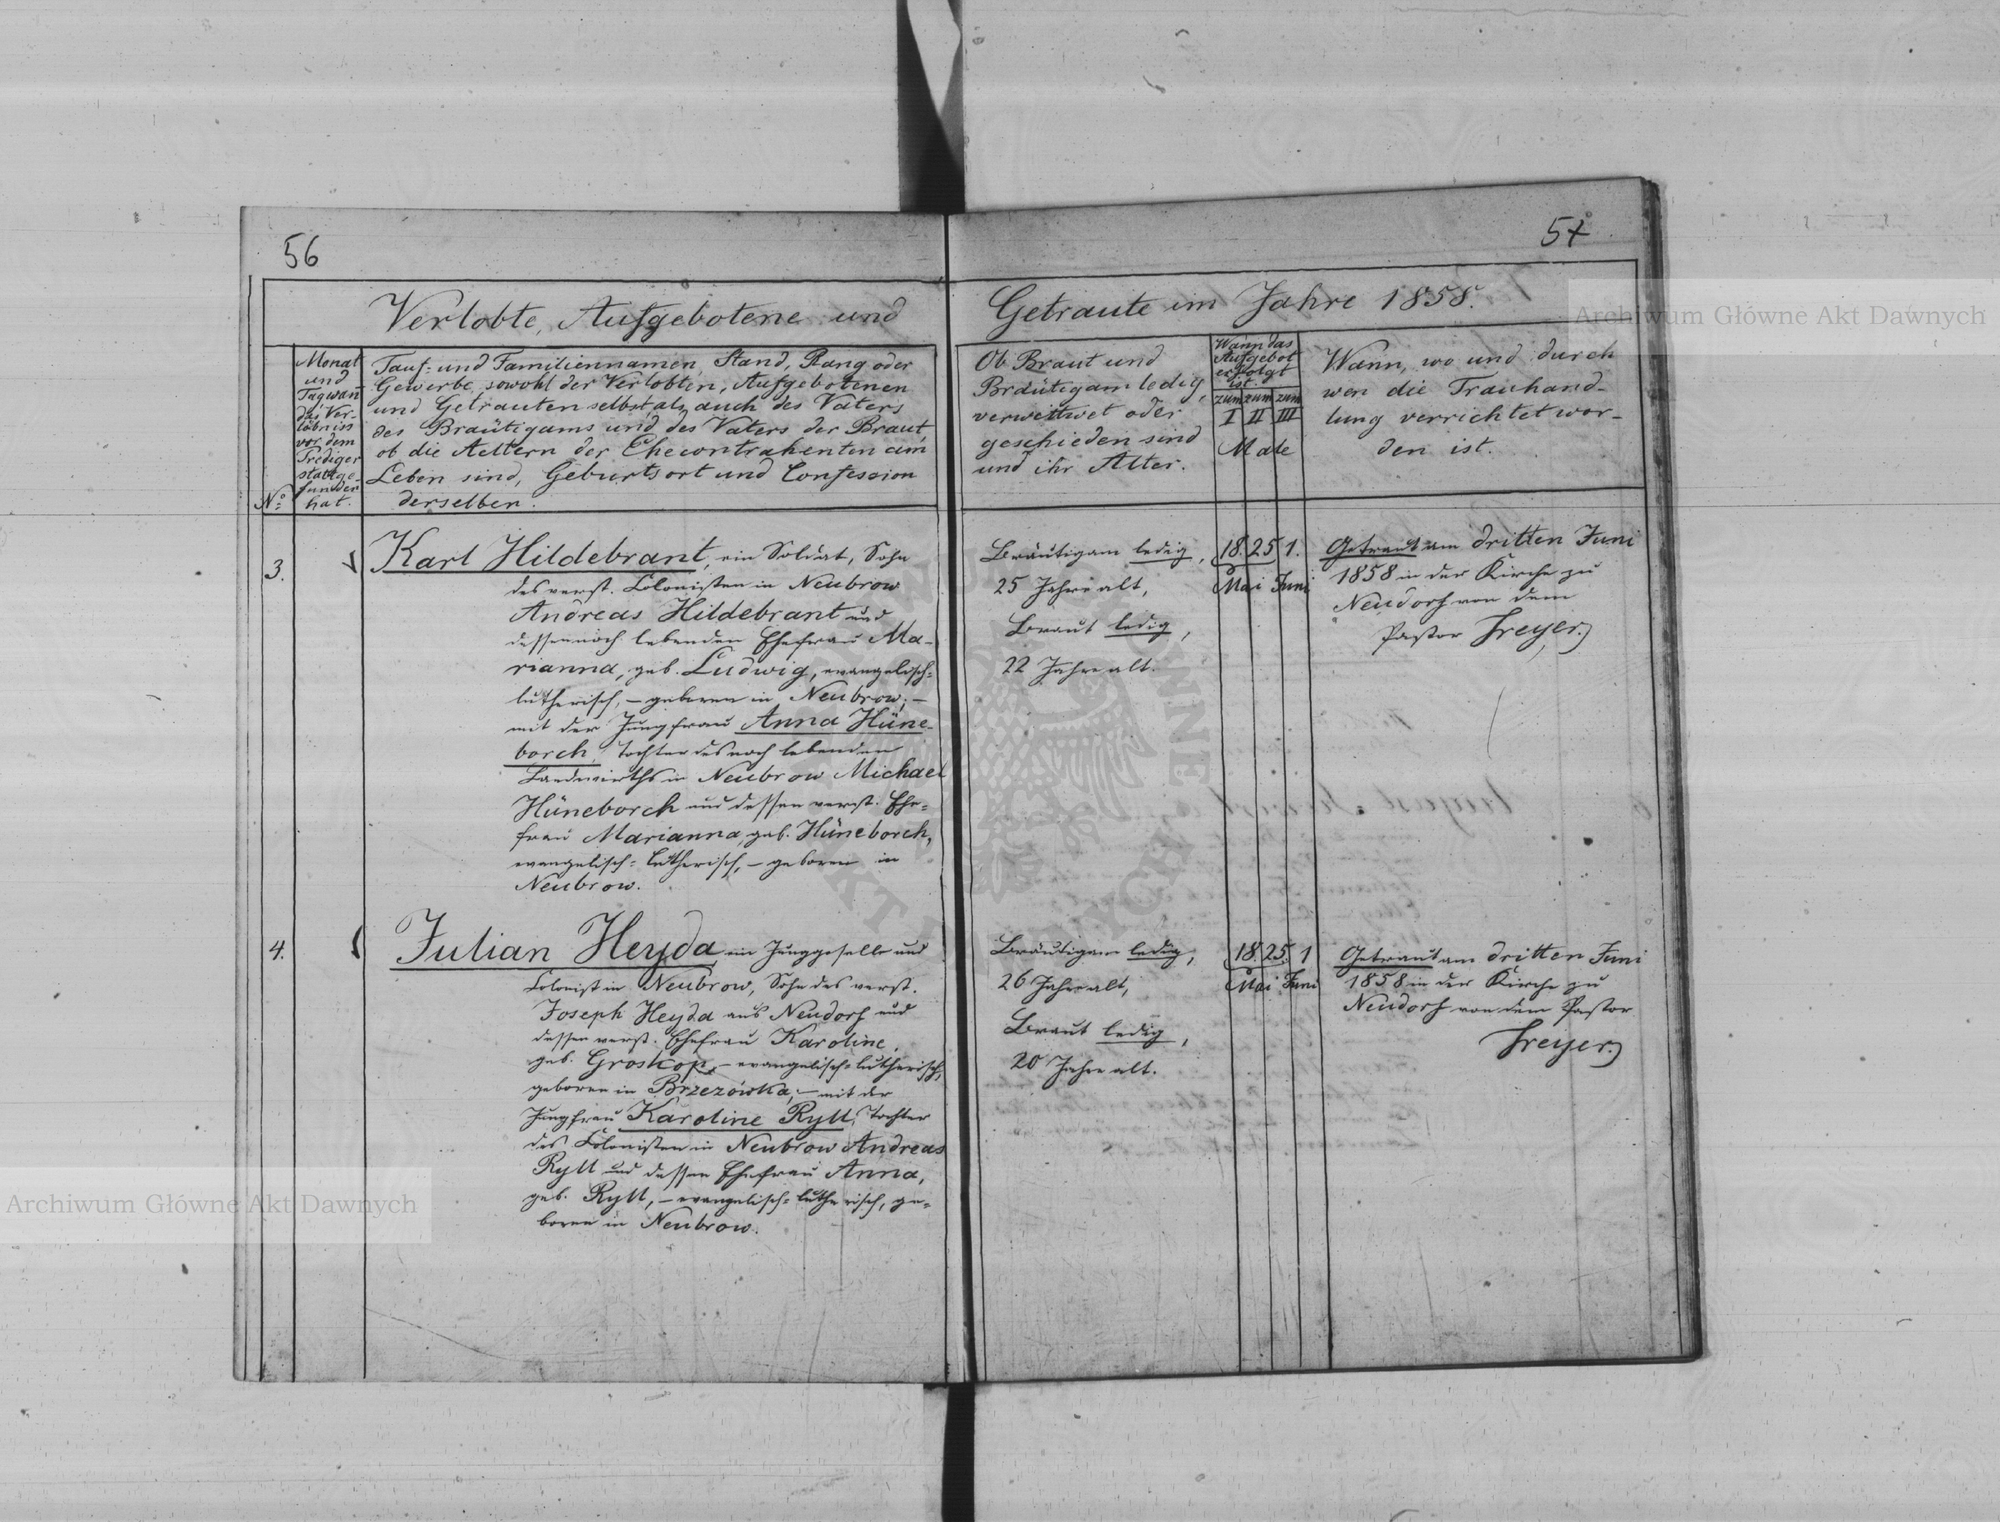 56
57
Verlobte, Aufgebotene und
Getraute im Jahre 1858.
No:
Monat
und
Tag wan
das Ver-
löbniss
vor dem
Prediger
stattge-
funden
hat.
Tauf- und Familiennamen, Stand, Rang oder
Gewerbe, sowohl der Verlobten, Aufgebotenen
und Getrauten selbst, als auch des Vaters
des Bräutigams und des Vaters der Braut,
ob die Aeltern der Ehecontrahenten am
Leben sind, Geburtsort und Confession
derselben.
Ob Braut und
Bräutigam ledig,
verwittwet oder
geschieden sind
und ihr Alter.
Wann das
Aufgebot
erfolgt
ist.
zum zum zum
I II III
Male
Wann, wo und durch
wen die Trauhand-
lung verrichtet wor-
den ist.
3.
Karl Hildebrant, ein Soldat, Sohn
des verst. Colonisten in Neubrow
Andreas Hildebrant und
dessen noch lebenden Ehefrau Ma-
rianna, geb. Ludwig, evangelisch-
lutherisch, – geboren in Neubrow, –
mit der Jungfrau Anna Hüne-
borch, Tochter des noch lebenden
Landwirths in Neubrow Michael
Hüneborch und dessen verst. Ehe-
frau Marianna, geb. Hüneborch,
evangelisch-lutherisch, – geboren in
Neubrow.
Bräutigam ledig,
25 Jahre alt,
Braut ledig,
22 Jahre alt.
18. 25 1.
Mai Juni
Getraut am dritten Juni
1858 in der Kirche zu
Neudorf von dem
Pastor Freyer.
4.
Julian Heyda, ein Junggeselle und
Colonist in Neubrow, Sohn des verst.
Joseph Heyda aus Neudorf und
dessen verst. Ehefrau Karoline,
geb. Groskop, – evangelisch-lutherisch,
geboren in Brzezówka, – mit der
Jungfrau Karoline Ryll, Tochter
des Colonisten in Neubrow Andreas
Ryll und dessen Ehefrau Anna,
geb. Ryll, – evangelisch-lutherisch, ge-
boren in Neubrow.
Bräutigam ledig,
26 Jahre alt,
Braut ledig,
20 Jahre alt.
18. 25. 1
Mai Juni
Getraut am dritten Juni
1858 in der Kirche zu
Neudorf von dem Pastor
Freyer.
Archiwum Główne Akt Dawnych
Archiwum Główne Akt Dawnych